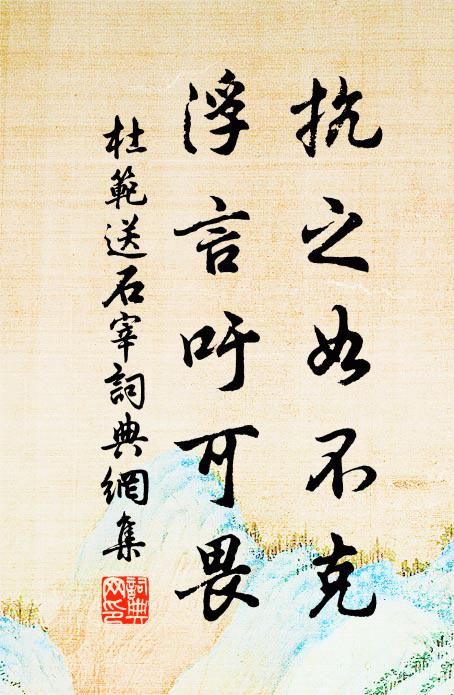 抗之如不克
浮言吁可畏
杜範送石宰詞典網集
詞典